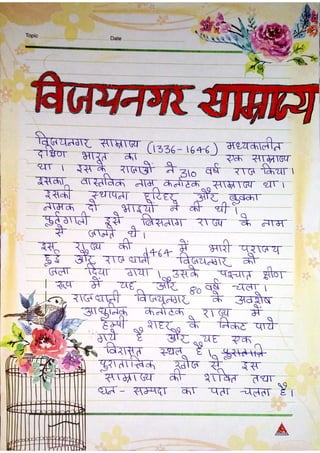 Topic
Date
विजयनगर साम्राज्य
विजयनगर साम्राज्य (1336-1646) मध्यकालीन
दक्षिण भारत का एक साम्राज्य
था। इसके राजाओं ने 310 वर्ष राज किया।
इसका वास्तविक नाम कर्नाटक साम्राज्य था।
इसकी स्थापना हरिहर और बुक्का
नामक दो भाइयों ने की थी।
पुर्तगाली इसे बिसनागा राज्य के नाम
से जानते थे।
इस राज्य की 1464 में भारी पराजय
हुई और राजधानी विजयनगर को
जला दिया गया। उसके पश्चात क्षीण
रूप में यह और 80 वर्ष चला।
राजधानी विजयनगर के अवशेष
आधुनिक कर्नाटक राज्य में
हम्पी शहर के निकट पाये
गये है और यह एक
विरासत स्थल है। पुरातात्ति
पुरातात्विक खोज से इस
साम्राज्य की शक्ति तथा
धन-सम्पदा का पता चलता है।